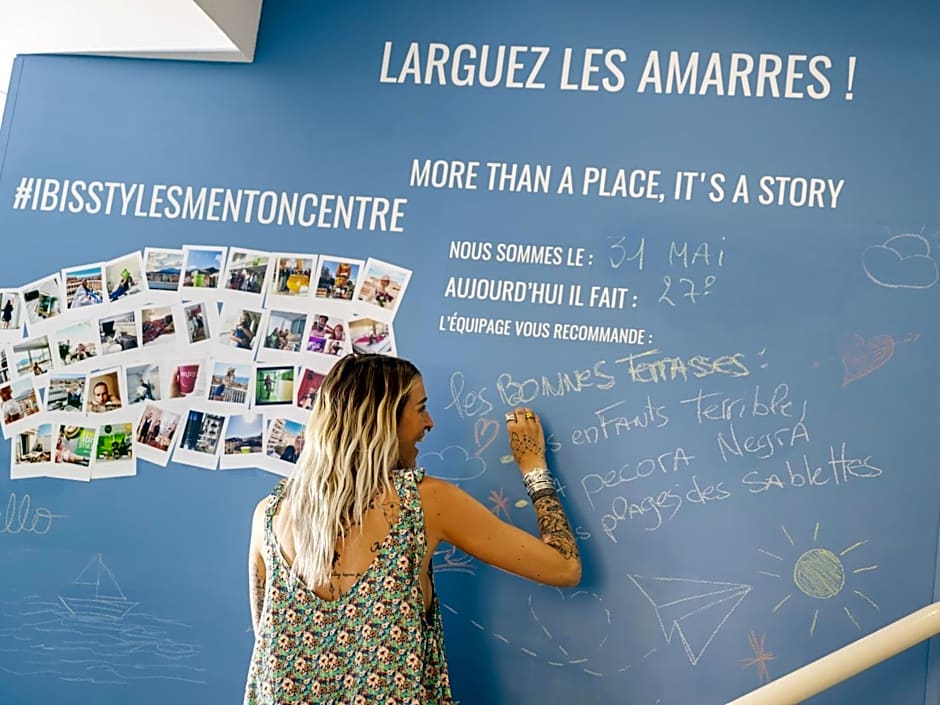 LARGUEZ LES AMARRES !
MORE THAN A PLACE, IT'S A STORY
#IBISSTYLESMENTONCENTRE
NOUS SOMMES LE : 31 MAi
AUJOURD'HUI IL FAIT : 27°
L'ÉQUIPAGE VOUS RECOMMANDE :
les BONNES TERRASSES :
enfants Terrible,
pecora Negra
plages des Sablettes
enjoy
ello